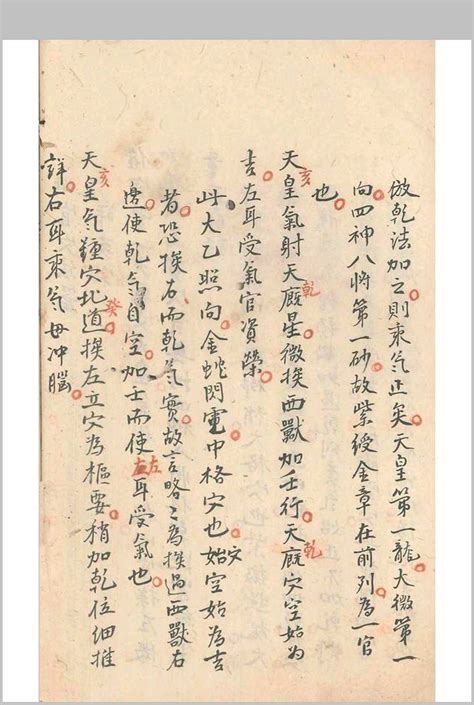 放乾法加之則乘气正矣天皇第一龍大微第一
向四神八將第一砂故紫綬金章在前列為一官
也
天皇氣射天廐星微挨西獸加壬行天廐穴空始為
吉左耳受氣官資榮
此大乙照向金蛇閃電中格穴也穴始空始為吉
者恐挨右而乾气實故言略之為挨過西獸右
邊使乾气自空加壬而使左耳受氣也
天皇气鍾穴北道挨左立穴為樞要稍加乾位細推
詳右耳乘气毋冲腦
亥
乾
乾
左
亥
癸